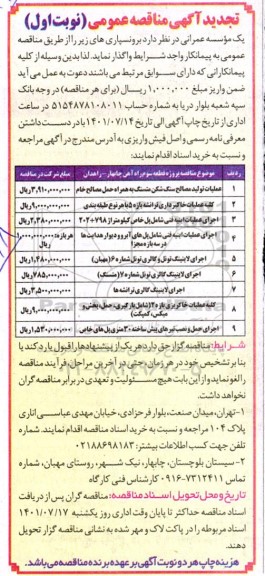 تجدید آگهی مناقصه عمومی (نوبت اول)
یک مؤسسه عمرانی در نظر دارد برونسپاری های زیر را از طریق مناقصه
عمومی به پیمانکار واجد شرایط واگذار نماید. لذا بدین وسیله از کلیه
پیمانکارانی که دارای سوابق مرتبط می باشند دعوت به عمل می آید
ضمن واریز مبلغ ۱,۰۰۰,۰۰۰ ریال (برای هر مناقصه) در وجه بانک
سپه شعبه بلوار دریا به شماره حساب ۵۱۵۴۸۷۸۱۰۸۰۱۱ در ساعات
اداری از تاریخ چاپ آگهی الی تاریخ ۱۴۰۱/۰۷/۱۴ با در دست داشتن
معرفی نامه رسمی و اصل فیش واریزی به آدرس مندرج در آگهی مراجعه
و نسبت به خرید اسناد اقدام نمایند:
ردیف موضوع مناقصه پروژه قطعه سوم راه آهن چابهار - زاهدان مبلغ شرکت در مناقصه
۱ عملیات تولید مصالح سنگ شکن مشمت به همراه حمل مصالح خام ۳,۹۱۰,۰۰۰,۰۰۰ ریال
۲ کلیه عملیات خاکبرداری ترانشه بازه ۵ با هر نوع طبقه بندی ۹,۰۰۰,۰۰۰,۰۰۰ ریال
۳ اجرای عملیات ابنیه فنی شامل پل خاص کیلومتراژ ۷۹۸+۲۰۲ ۲,۳۸۰,۰۰۰,۰۰۰ ریال
۴ اجرای عملیات ابنیه فنی شامل پل های آبرو و دیوار هدایت ها در سه بازه مجزا هر بازه: ۱,۰۰۰,۰۰۰,۰۰۰ ریال
۵ اجرای لاینینگ تونل و گالری تونل شماره ۶ (مهمان) ۱,۴۸۰,۰۰۰,۰۰۰ ریال
۶ اجرای لاینینگ گالری تونل شماره ۷ (مشنگ) ۷۸۵,۰۰۰,۰۰۰ ریال
۷ اجرای لاینینگ گالری ترانشه ها ۳,۵۰۰,۰۰۰,۰۰۰ ریال
۸ کلیه عملیات خاکریزی بازه ۲ (شامل بارگیری، حمل، پخش و میکس، کمپکت) ۹,۰۰۰,۰۰۰,۰۰۰ ریال
۹ اجرای حمل و نصب تیرهای پیش ساخته ۳۰ متری پل های خاص ۱,۵۳۰,۰۰۰,۰۰۰ ریال
شرایط: مناقصه گزار حق دارد هر یک از پیشنهادها را قبول یا رد کند یا
بنا بر تشخیص خود در هر زمان حتی در آخرین مراحل، فرآیند مناقصه
را لغو نماید و از این بابت هیچ مسئولیت و تعهدی در برابر مناقصه گران
نخواهد داشت.
۱- تهران، میدان صنعت، بلوار فرحزادی، خیابان مهدی عباسی اناری
پلاک ۱۰۴ مراجعه و نسبت به خرید اسناد مناقصه اقدام نمایند. شماره
تلفن جهت کسب اطلاعات بیشتر: ۰۲۱۸۸۶۹۸۱۸۳
۲- سیستان بلوچستان، چابهار، نیک شهر، روستای مهبان، شماره
تماس ۷۳۱۲۴۱۱-۰۹۱۶ کارشناس فنی کارگاه
تاریخ و محل تحویل اسناد مناقصه: مناقصه گران پس از دریافت
اسناد مناقصه حداکثر تا پایان وقت اداری روز یکشنبه ۱۴۰۱/۰۷/۱۷
اسناد مربوطه را در پاکت لاک و مهر شده به نشانی مناقصه گزار تحویل
دهند.
هزینه چاپ هر دو نوبت آگهی بر عهده برنده مناقصه می باشد.